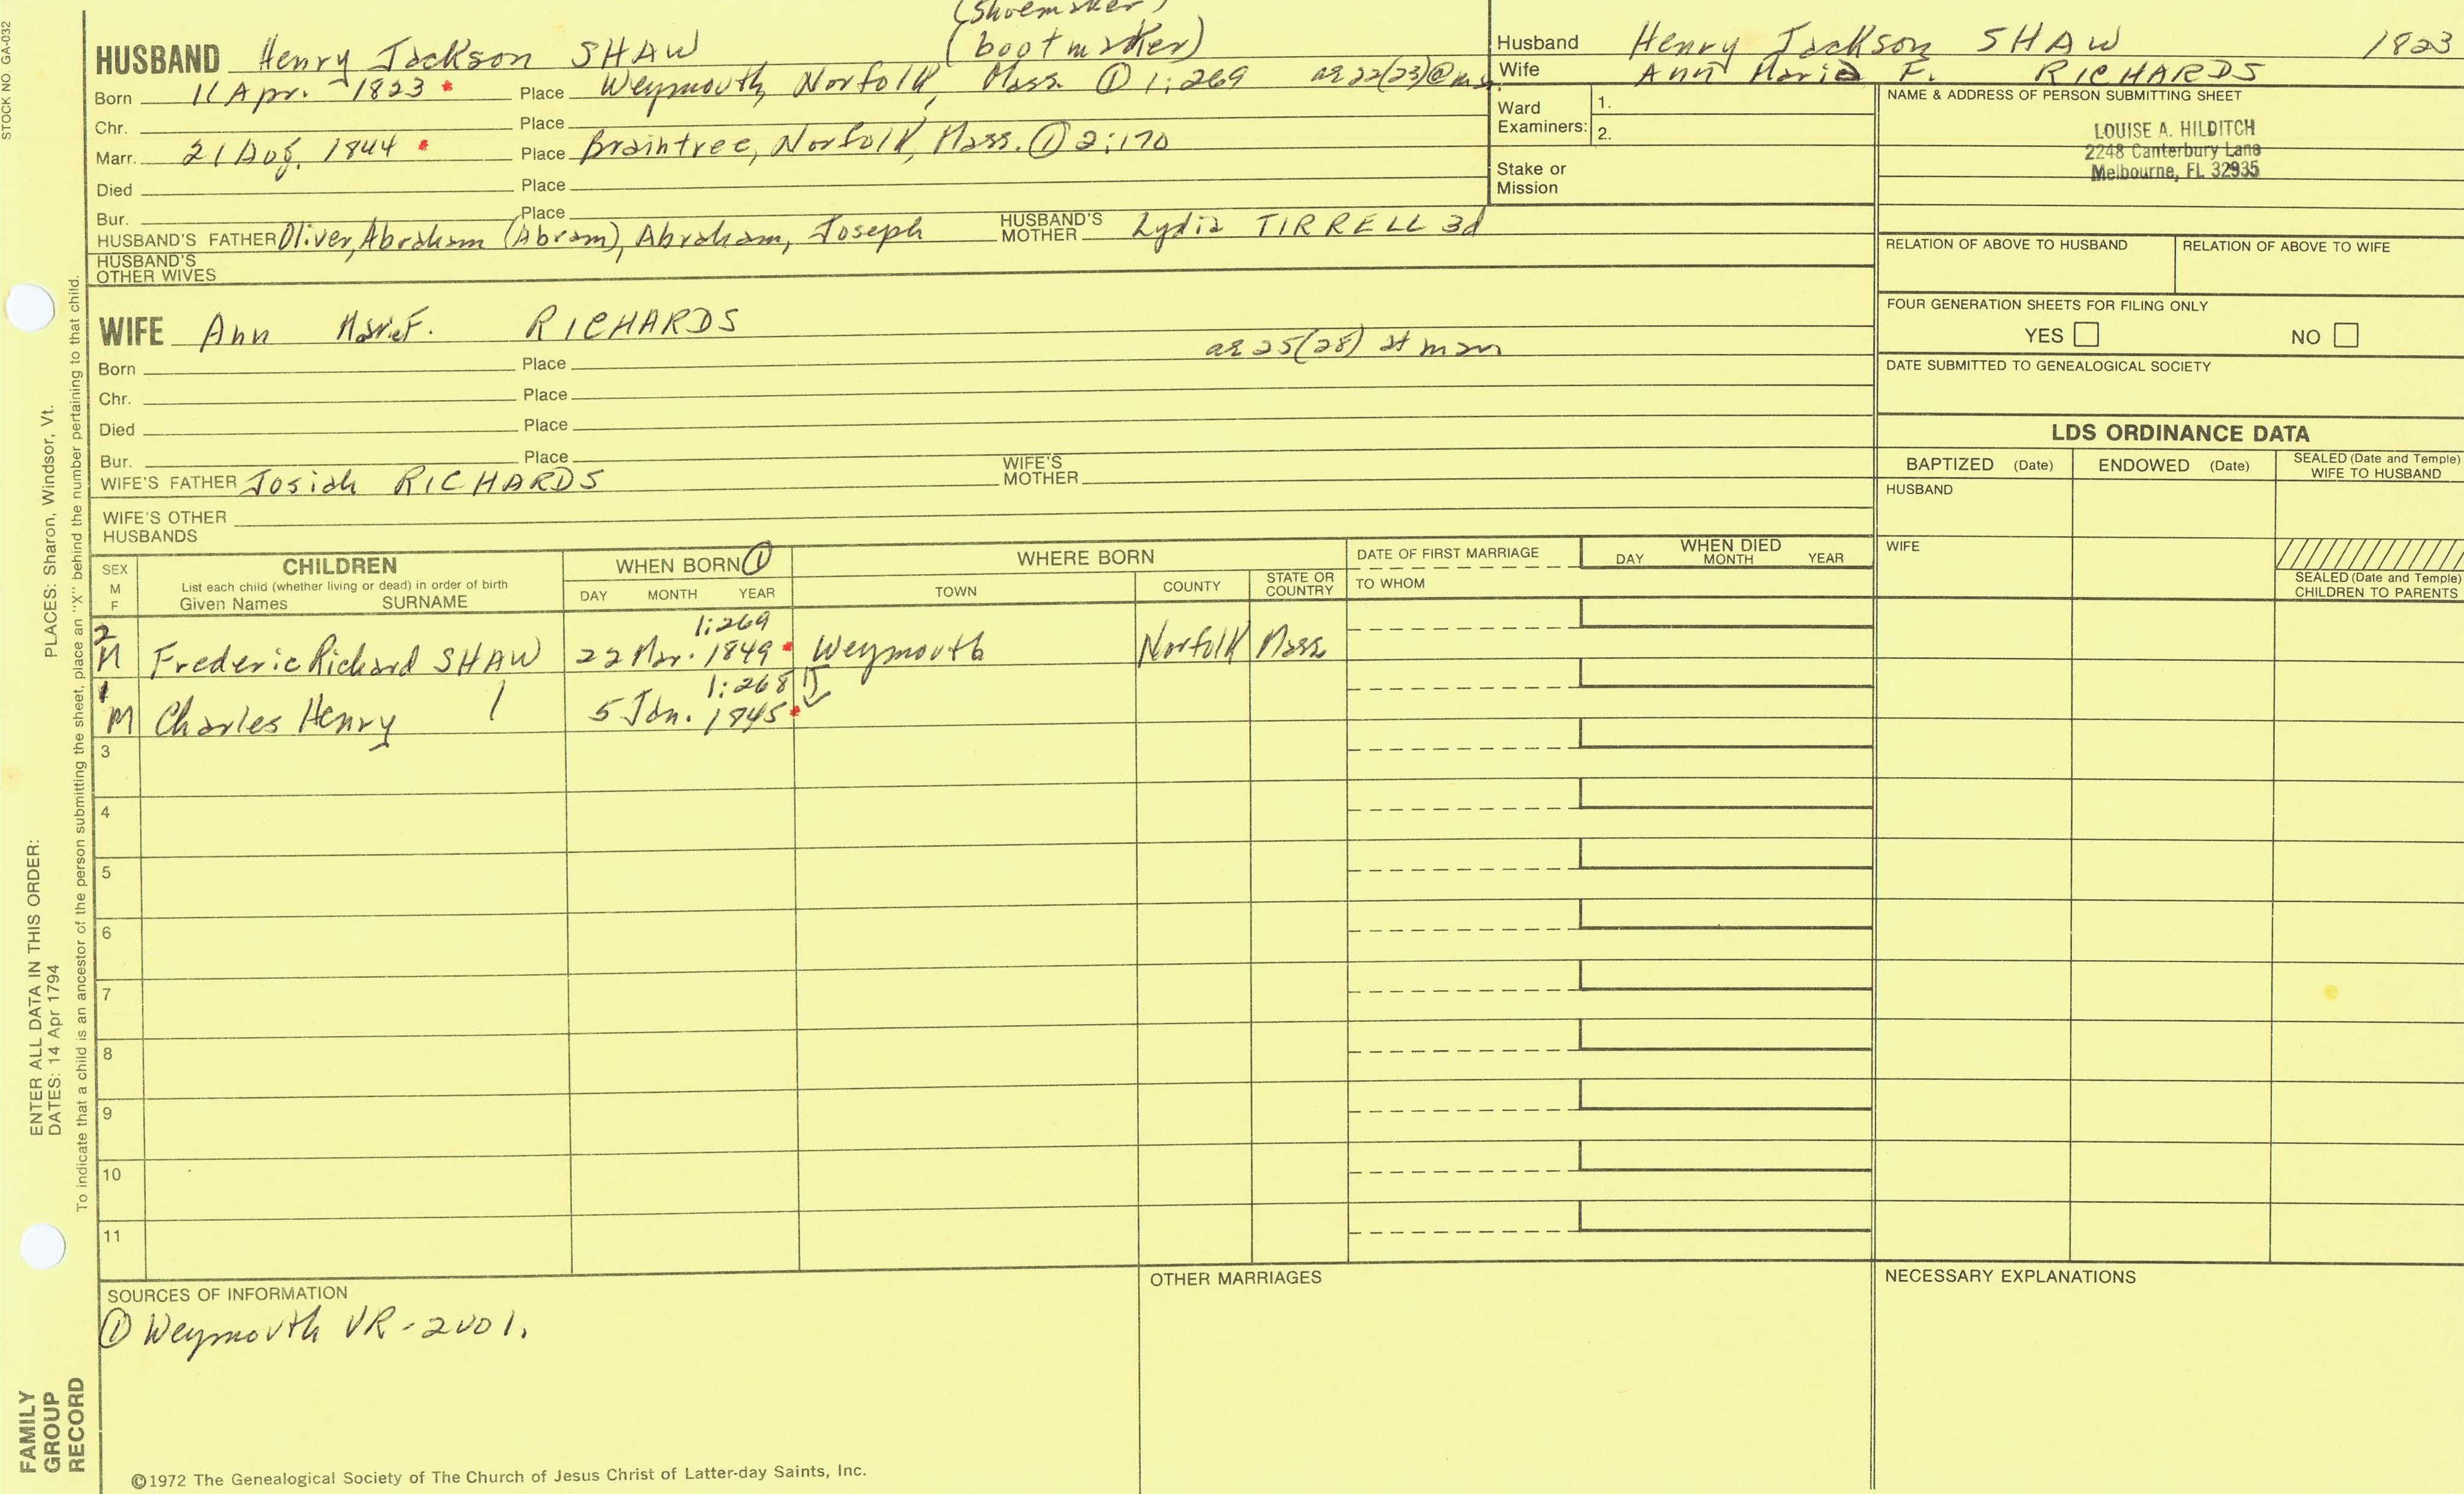 STOCK NO. GA-032
(Shoemaker)
(bootmaker)
HUSBAND Henry Jackson SHAW
Born 11 Apr. 1823 Place Weymouth, Norfolk, Mass. ① 1:269 ae 22(23)@m
Chr. Place
Marr. 21 Aug. 1844 Place Braintree, Norfolk, Mass. ① 2:170
Died Place
Bur. Place
HUSBAND'S FATHER Oliver, Abraham (Abram), Abraham, Joseph HUSBAND'S MOTHER Lydia TIRRELL 3d
HUSBAND'S OTHER WIVES
Husband Henry Jackson SHAW 1823
Wife Ann Maria F. RICHARDS
Ward Examiners: 1.
2.
Stake or Mission
NAME & ADDRESS OF PERSON SUBMITTING SHEET
LOUISE A. HILDITCH
2248 Canterbury Lane
Melbourne, FL 32935
RELATION OF ABOVE TO HUSBAND RELATION OF ABOVE TO WIFE
FOUR GENERATION SHEETS FOR FILING ONLY
YES NO
DATE SUBMITTED TO GENEALOGICAL SOCIETY
WIFE Ann Maria F. RICHARDS
ae 25(28) at marr
Born Place
Chr. Place
Died Place
Bur. Place
WIFE'S FATHER Josiah RICHARDS WIFE'S MOTHER
WIFE'S OTHER HUSBANDS
LDS ORDINANCE DATA
BAPTIZED (Date) ENDOWED (Date) SEALED (Date and Temple) WIFE TO HUSBAND
HUSBAND
WIFE
SEALED (Date and Temple) CHILDREN TO PARENTS
SEX M F
CHILDREN
List each child (whether living or dead) in order of birth
Given Names SURNAME
WHEN BORN ①
DAY MONTH YEAR
WHERE BORN
TOWN COUNTY STATE OR COUNTRY
DATE OF FIRST MARRIAGE
TO WHOM
WHEN DIED
DAY MONTH YEAR
1:269
2 M Frederic Richard SHAW 22 Mar. 1849 Weymouth Norfolk Mass
1:268
1 M Charles Henry 5 Jan. 1845
3
4
5
6
7
8
9
10
11
SOURCES OF INFORMATION
① Weymouth VR - 2001.
OTHER MARRIAGES
NECESSARY EXPLANATIONS
©1972 The Genealogical Society of The Church of Jesus Christ of Latter-day Saints, Inc.
ENTER ALL DATA IN THIS ORDER:
DATES: 14 Apr 1794
PLACES: Sharon, Windsor, Vt.
To indicate that a child is an ancestor of the person submitting the sheet, place an "X" behind the number pertaining to that child.
FAMILY
GROUP
RECORD